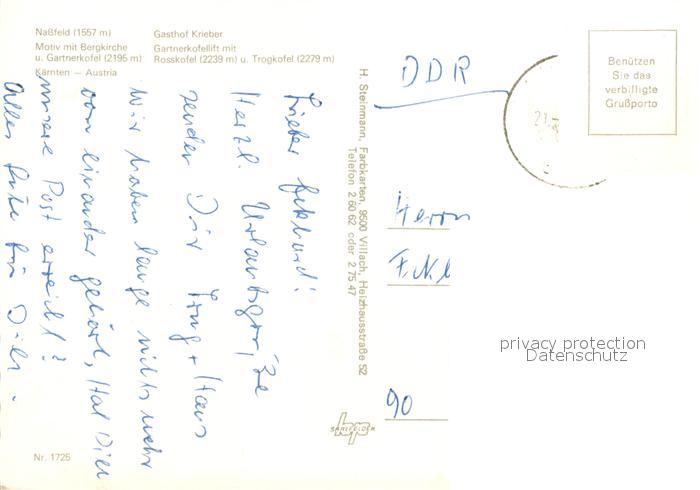 Naßfeld (1557 m)
Motiv mit Bergkirche
u. Gartnerkofel (2195 m)
Kärnten — Austria
Gasthof Krieber
Gartnerkofellift mit
Rosskofel (2239 m) u. Trogkofel (2279 m)
Lieber Ekkhard!
Herzl. Urlaubsgrüße
senden Dir + Hans
Wir haben lange nichts mehr
von einander gehört, Hat Dich
unsere Post erreicht?
Alles Gute für Dich.
H. Steinmann, Farbkarten, 9500 Villach, Heizhausstraße 52
Telefon 2 60 62 oder 2 75 47
DDR
Benützen
Sie das
verbilligte
Grußporto
Herrn
90
privacy protection
Datenschutz
Nr. 1725